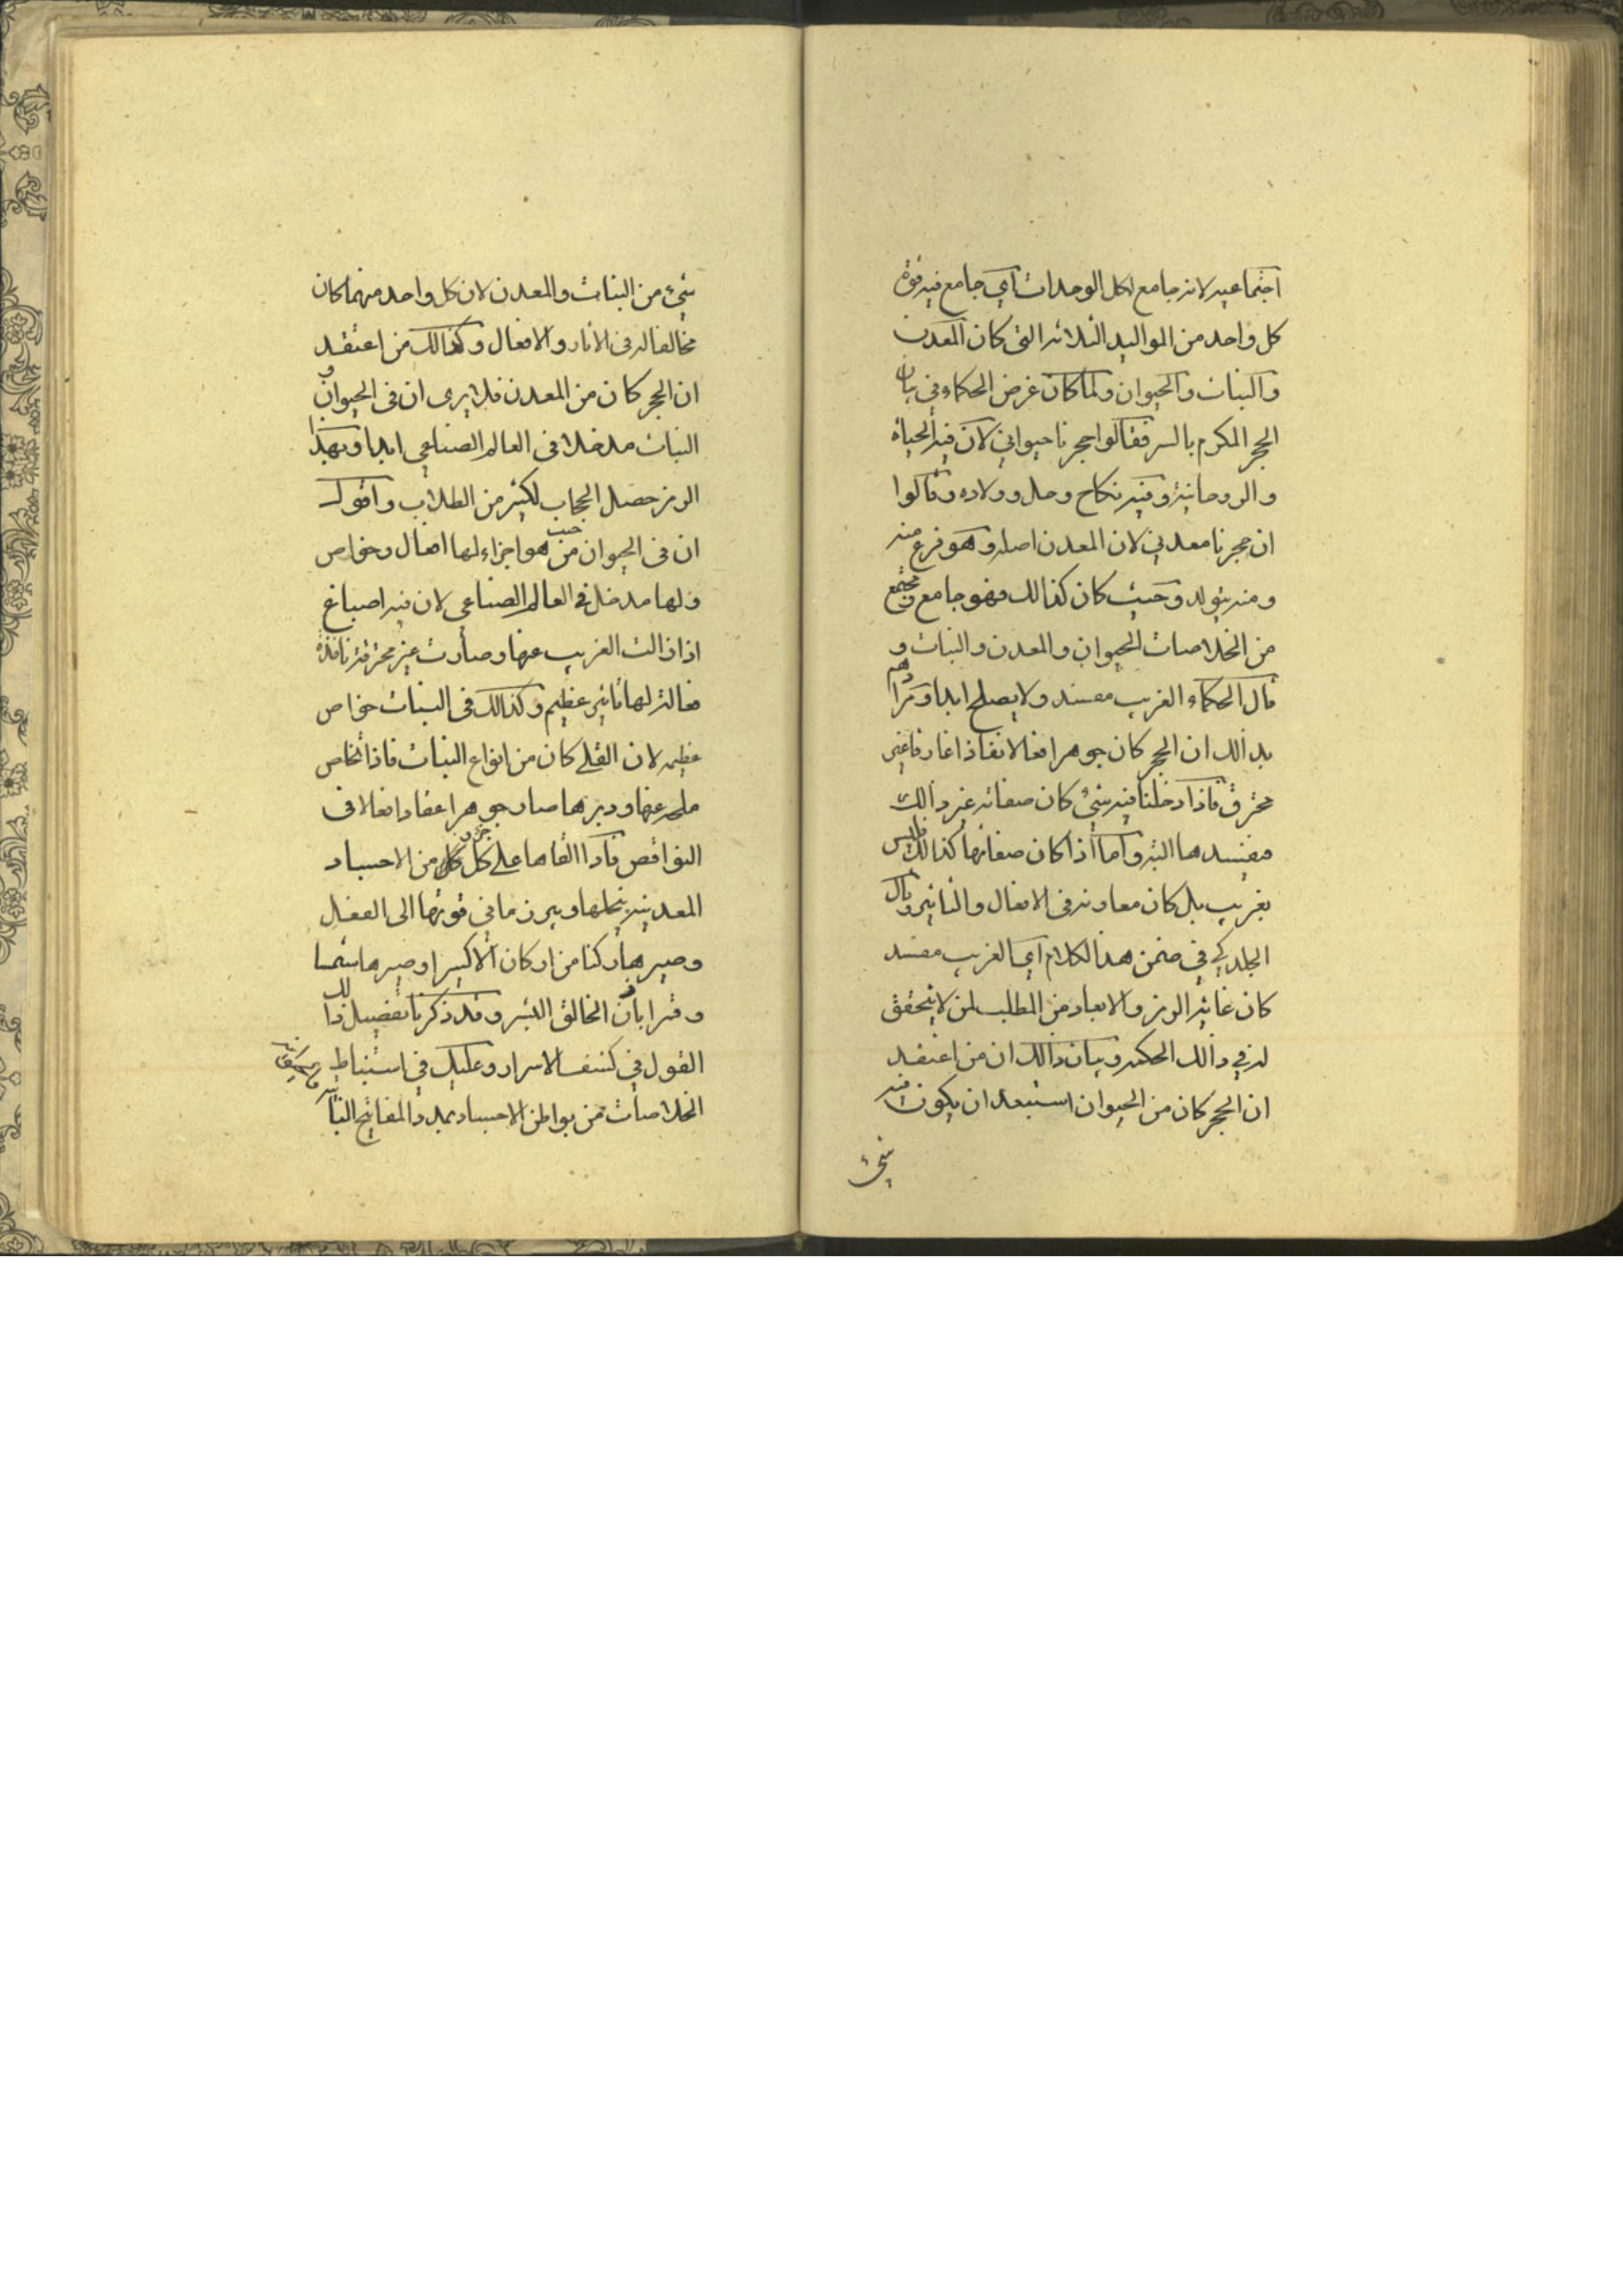 اجتماعيه لانه جامع لكل الوحدات اي جامع فيه قوة
كل واحد من المواليد الثلاثه التى كان المعدن
والنبات والحيوان ولما كان غرض الحكماء في بيان
الحجر المكرم بالسر فقالوا حجرنا حيواني لان فيه الحياة
والروحانية وفيه نكاح وحمل وولاده وقالوا
ان حجرنا معدني لان المعدن اصله وهو فرع منه
ومنه يتولد وحيث كان كذالك فهو جامع مجتمع
من الخلاصات الحيوان والمعدن والنبات و
قال الحكماء الغريب مفسد ولا يصلح ابدا ومرادهم
بذالك ان الحجر كان جوهرا فعالا نفاذا غارقا غير
محترق فاذا دخلنا فيه شئ كان صفاته غير ذالك
مفسدها البته واما اذا كان صفاتها كذالك فليس
بغريب بل كان معاونه فى الافعال والتاثير وقال
الجلدكي في ضمن هذالكلام اي الغريب مفسد
كان غاية الرمز والابعاد من المطلب لمن لا يتحقق
له في ذالك الحكمه وبيان ذالك ان من اعتقد
ان الحجر كان من الحيوان استبعد ان يكون فيه
شئ
شئ من النبات والمعدن لان كل واحد منهما كان
مخالفا له فى الاثار والافعال وكذالك من اعتقد
ان الحجر كان من المعدن فلا يرى ان فى الحيوان و
النبات مدخلا فى العالم الصناعي ابدا وبهذا
الرمز حصل الحجاب لكثير من الطلاب واقول
ان فى الحيوان من حيث هو اجزاء لها افعال وخواص
ولها مدخل فى العالم الصناعي لان فيه اصباغ
اذا زالت الغريب عنها وصارت غير محترقة نافذة
فعالة لها تاثير عظيم وكذالك فى النبات خواص
عظيمه لان القلى كان من انواع النبات فاذا خاص
ملح عنها ودبرها صار جوهرا عقادا فعالا فى
النواقص فاذا القاها على كل جزء من الاجساد
المعدنيه يحلها ويبرز ما في قوتها الى الفعل
وصيرها ركنا من اركان الاكسير او صيرها شمسا
وقمرا باذن الخالق البشر وقد ذكرنا تفصيل ذالك
القول في كشف الاسرار وعليك في استنباط
الخلاصات من بواطن الاجساد بمدد المفاتيح